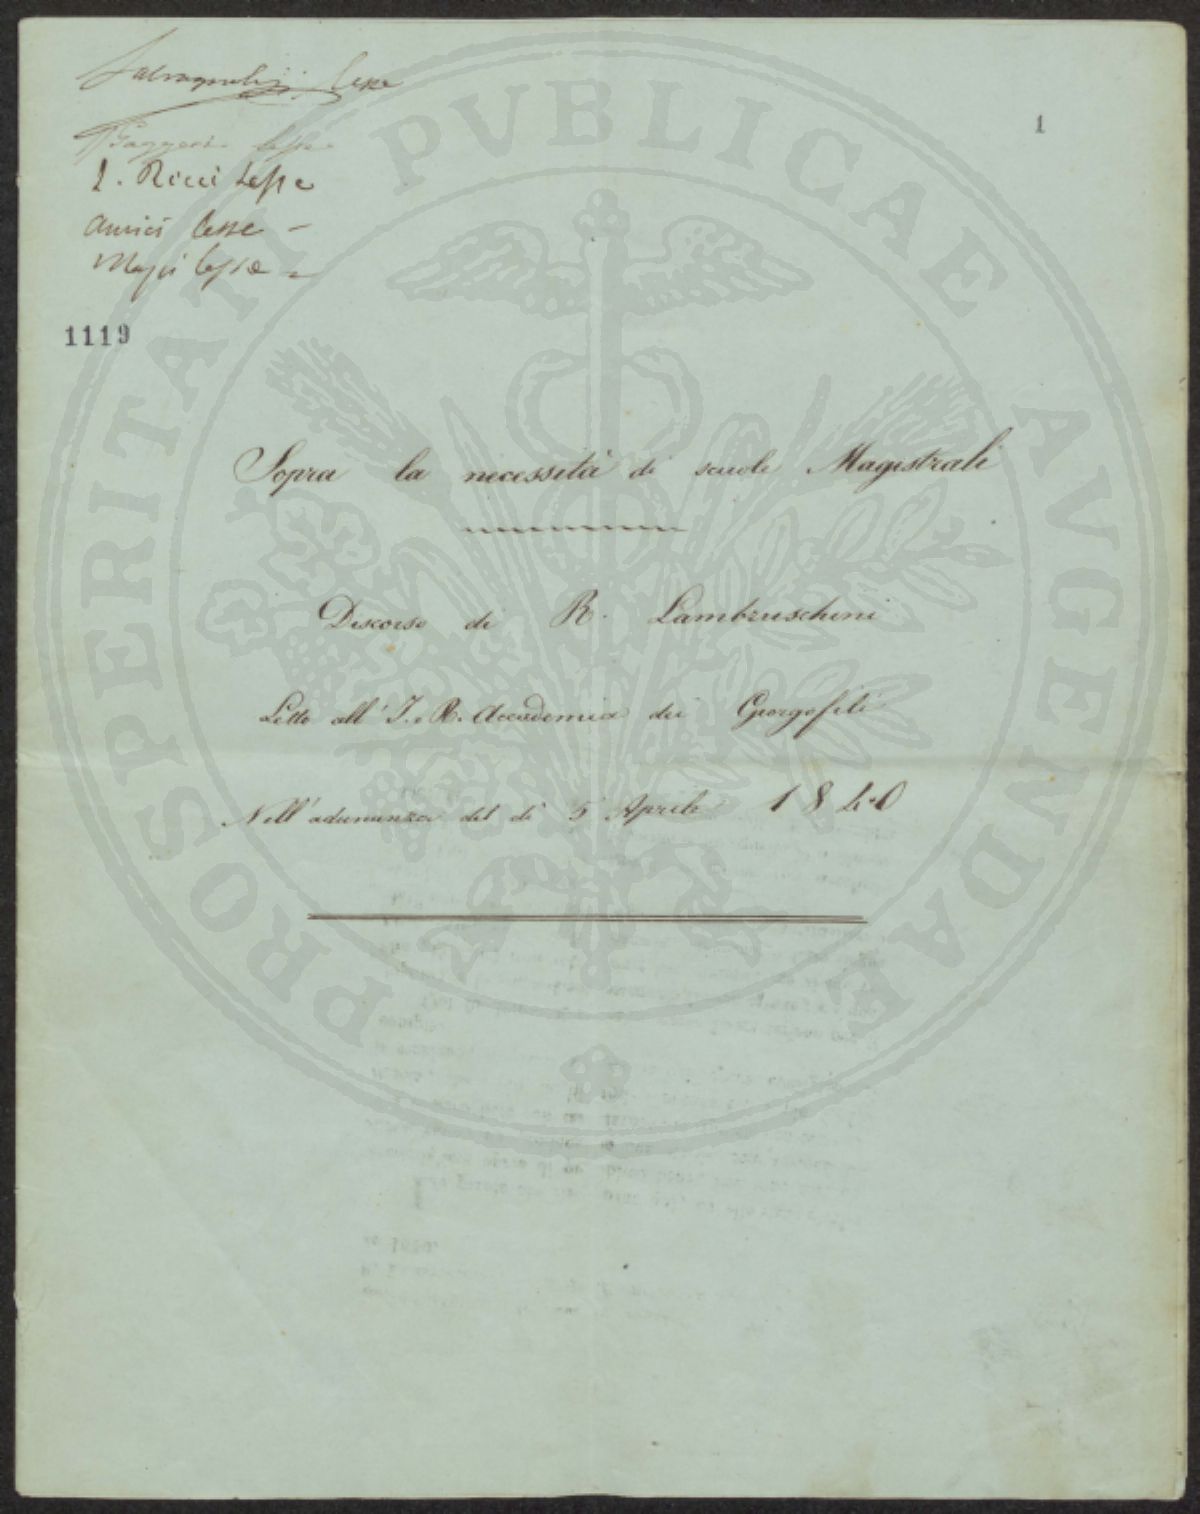 Salvagnoli lesse
1
Gazzeri lesse
L. Ricci Lesse
Amici lesse –
lesse
1119
Sopra la necessità di scuole Magistrali
Discorso di R. Lambruschini
Letto all' I. e R. Accademia dei Georgofili
Nell'adunanza del dì 5 Aprile 1840
PROSPERITATI PVBLICAE AVGENDAE